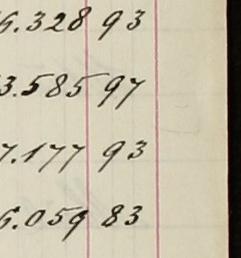 6.328 93
3.585 97
7.177 93
6.059 83